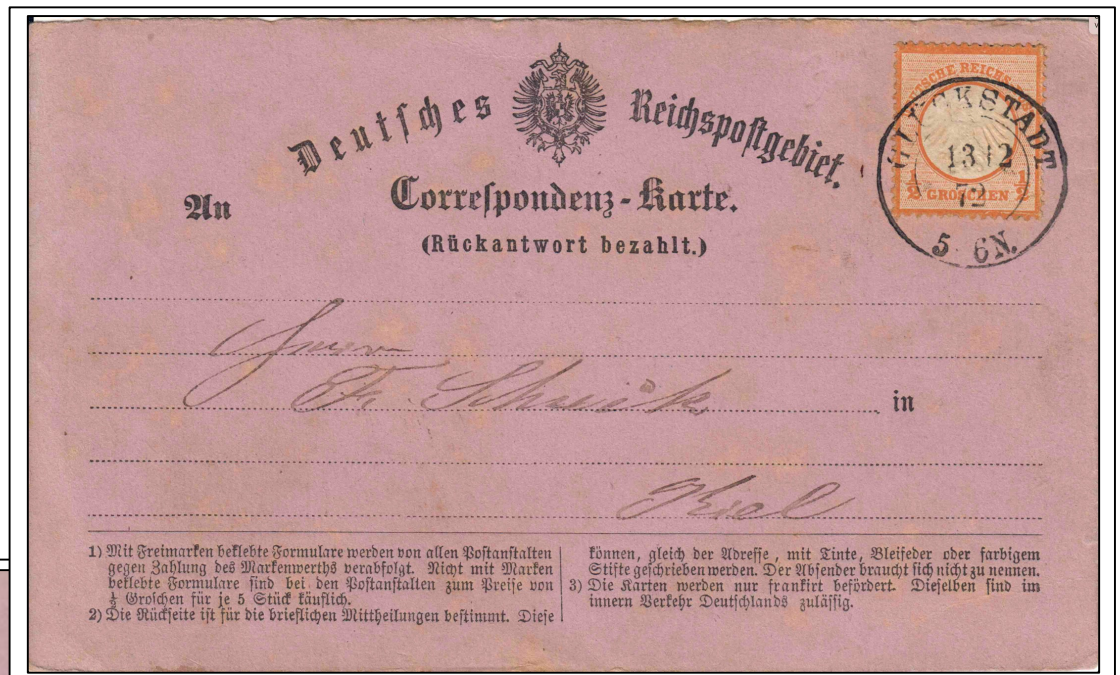 Deutsches Reichspostgebiet.
Correspondenz-Karte.
(Rückantwort bezahlt.)
An
DEUTSCHE REICHS
½ GROSCHEN ½
GLÜCKSTADT
13 12
72
5-6N.
Herrn
Fr.
in
Kiel
1) Mit Freimarken beklebte Formulare werden von allen Postanstalten
gegen Zahlung des Markenwerths verabfolgt. Nicht mit Marken
beklebte Formulare sind bei den Postanstalten zum Preise von
Groschen für je 5 Stück käuflich.
2) Die Rückseite ist für die brieflichen Mittheilungen bestimmt. Diese
können, gleich der Adresse, mit Tinte, Bleifeder oder farbigem
Stifte geschrieben werden. Der Absender braucht sich nicht zu nennen.
3) Die Karten werden nur frankirt befördert. Dieselben sind im
innern Verkehr Deutschlands zulässig.